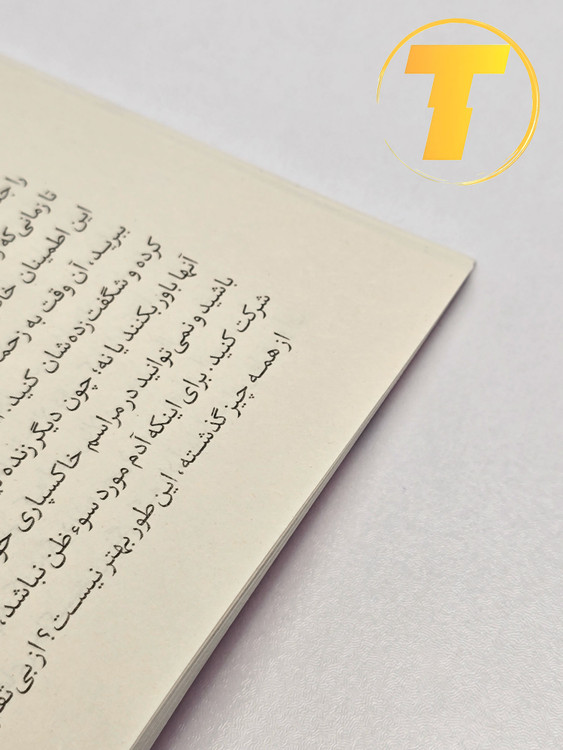 T
تا زمانی که
این اطمینان
ببرید، آن وقت به
کرده و شگفت‌زده‌شان کنید.
آنها باور بکنند یا نه؛ چون دیگر زنده
باشید و نمی‌توانید در مراسم خاکسپاری
شرکت کنید. برای اینکه آدم مورد سوءظن نباشد،
از همه چیز گذشته، این طور بهتر نیست؟ از بی